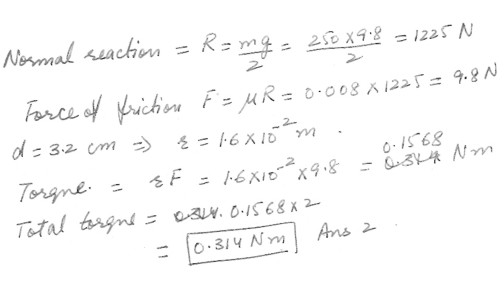 Normal reaction = R = mg/2 = 250 x 9.8/2 = 1225 N
Force of friction F = μR = 0.008 x 1225 = 9.8 N
d = 3.2 cm => r = 1.6 x 10^-2 m .
Torque. = rF = 1.6 x 10^-2 x 9.8 = 0.1568 Nm
Total torque = 0.1568 x 2
= 0.314 Nm Ans 2